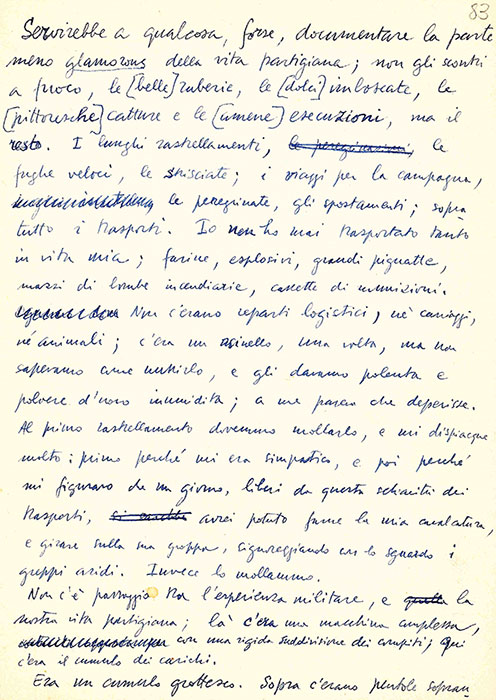 83
Servirebbe a qualcosa, forse, documentare la parte
meno glamorous della vita partigiana; non gli scontri
a fuoco, le [belle] ruberie, le [dolci] imboscate, le
[pittoresche] catture e le [amene] esecuzioni, ma il
resto. I lunghi rastrellamenti, le peregrinazioni, le
fughe veloci, le strisciate; i viaggi per la campagna,
le peregrinate, gli spostamenti; sopra
tutto i trasporti. Io non ho mai trasportato tanto
in vita mia; farine, esplosivi, grandi pignatte,
mazzi di bombe incendiarie, cassette di munizioni.
Non c'erano reparti logistici, né carriaggi,
né animali; c'era un asinello, una volta, ma non
sapevamo come nutrirlo, e gli davamo polenta e
polvere d'uovo inumidita; a me pareva che deperisse.
Al primo rastrellamento dovemmo mollarlo, e mi dispiacque
molto: primo perché mi era simpatico, e poi perché
mi figuravo che un giorno, liberi da questa schiavitù dei
trasporti, si sarebbe avrei potuto farne la mia cavalcatura,
e girare sulla sua groppa, signoreggiando con lo sguardo i
greppi aridi. Invece lo mollammo.
Non c'è passaggio tra l'esperienza militare, e quella la
nostra vita partigiana; là c'era una macchina complessa,
con una rigida suddivisione dei compiti; qui
c'era il cumulo dei carichi.
Era un cumulo grottesco. Sopra c'erano pentole sopran